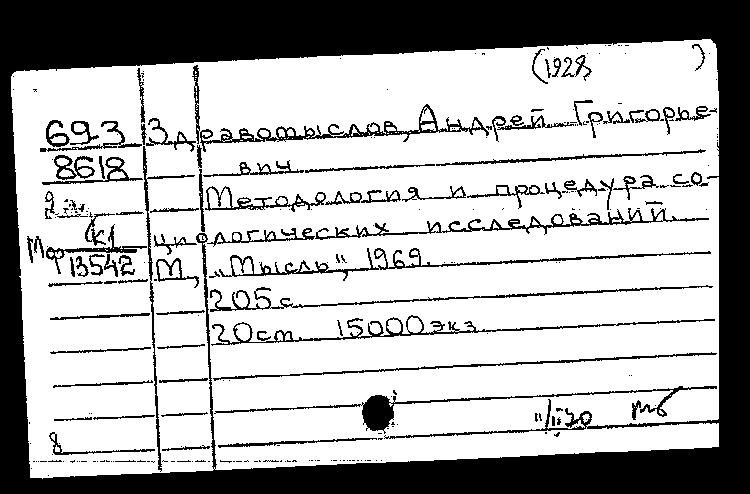 (1928, )
693 Здравомыслов, Андрей Григорье-
8618 вич
Методология и процедура со-
К1 циологических исследований.
13542 М., „Мысль“, 1969.
205 с.
20 см. 15000 экз.
8